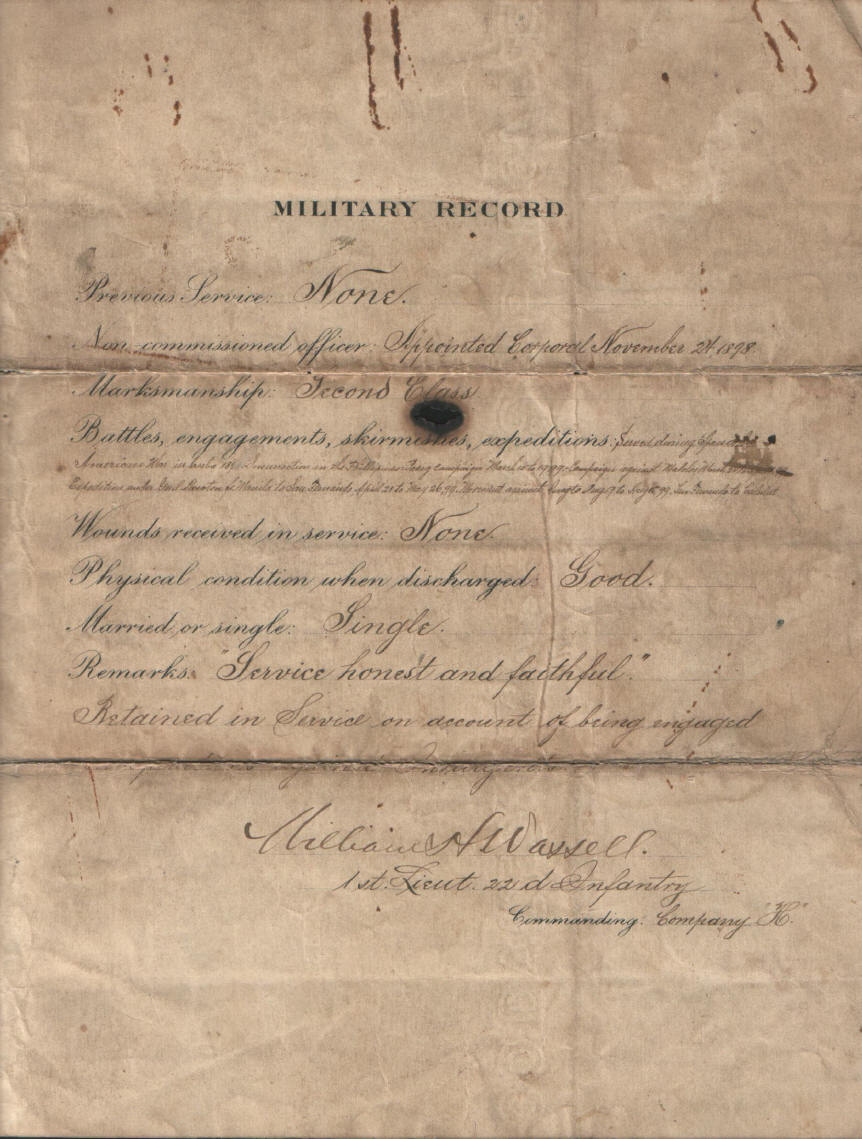 MILITARY RECORD
Previous Service: None.
Non-commissioned officer: Appointed Corporal November 24 1898
Marksmanship: Second Class
Battles, engagements, skirmishes, expeditions: Served during Spanish
American War in Insurrection in the campaign March Campaign against
Expedition under Genl to San Fernando April 21 to May 26, 99. Aug 9 to 99. San Fernando to
Wounds received in service: None.
Physical condition when discharged: Good.
Married or single: Single.
Remarks: "Service honest and faithful."
Retained in Service on account of being engaged
against
William H Wassell.
1st. Lieut. 22d Infantry
Commanding: Company "H."